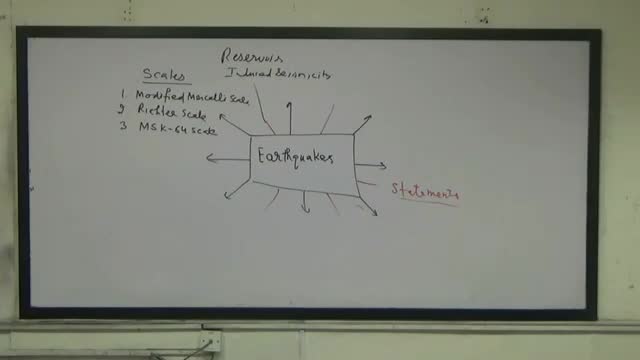 Reservoir
Induced Seismicity
Scales
1. Modified Mercalli Scale
2 Richter Scale
3 MSK-64 Scale
Earthquakes
Statements